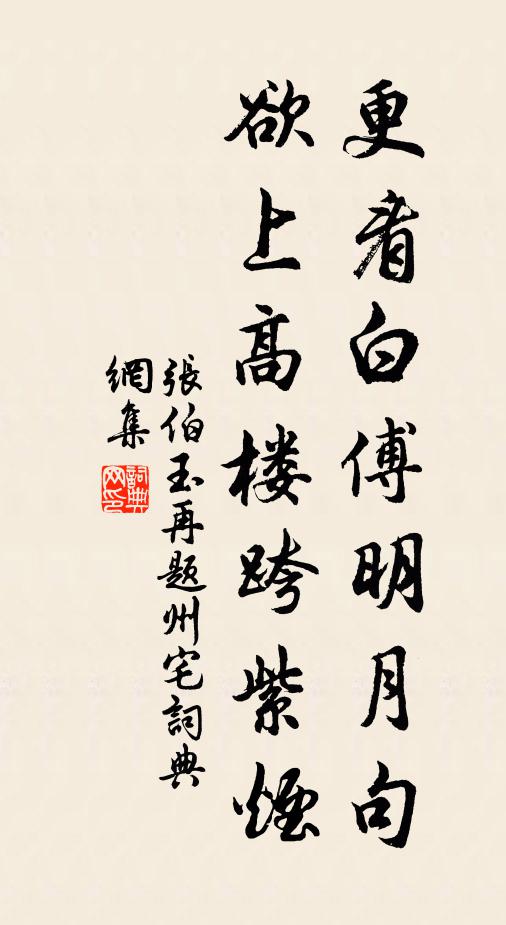 更看白傅明月句
欲上高楼跨紫煙
張伯玉再题州宅詞典
網集
詞典网印